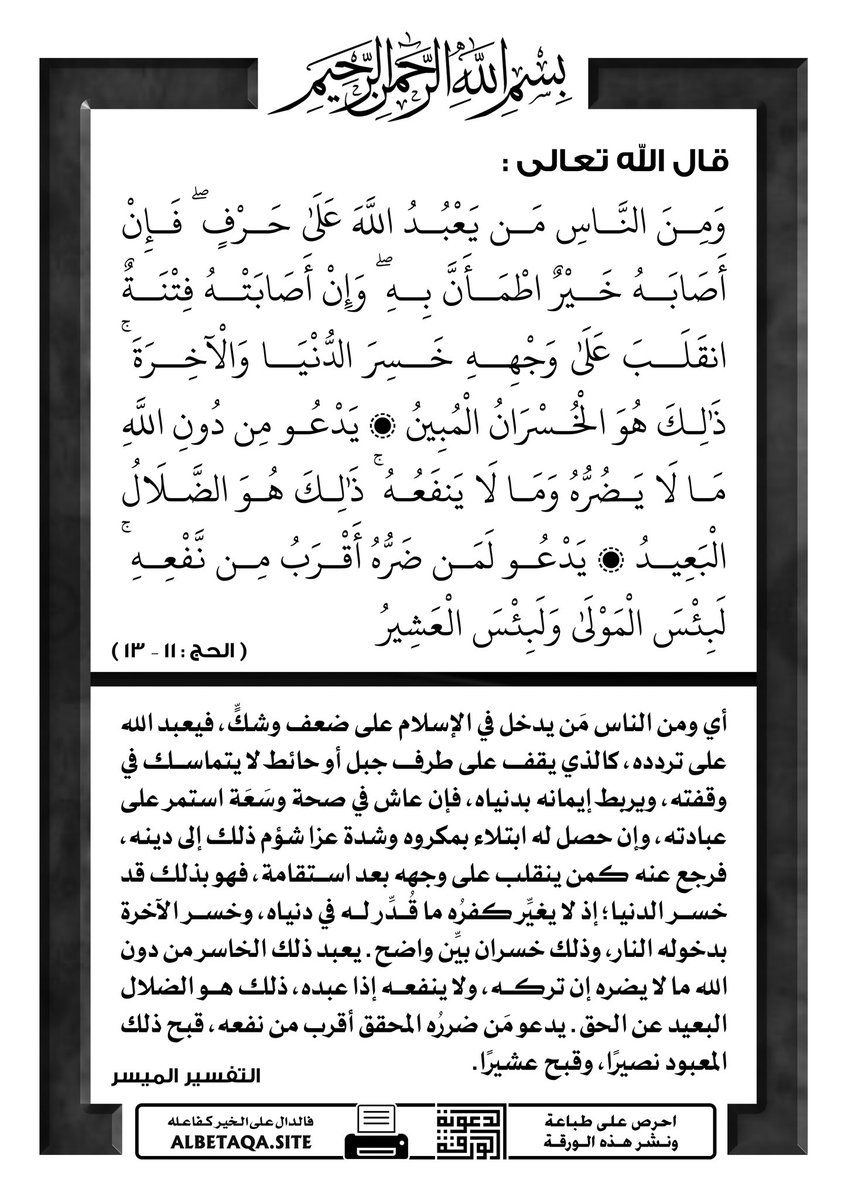 بِسْمِ اللَّهِ الرَّحْمَٰنِ الرَّحِيمِ
قال الله تعالى :
وَمِنَ النَّاسِ مَن يَعْبُدُ اللَّهَ عَلَىٰ حَرْفٍ ۖ فَإِنْ
أَصَابَهُ خَيْرٌ اطْمَأَنَّ بِهِ ۖ وَإِنْ أَصَابَتْهُ فِتْنَةٌ
انقَلَبَ عَلَىٰ وَجْهِهِ خَسِرَ الدُّنْيَا وَالْآخِرَةَ ۚ
ذَٰلِكَ هُوَ الْخُسْرَانُ الْمُبِينُ ۝ يَدْعُو مِن دُونِ اللَّهِ
مَا لَا يَضُرُّهُ وَمَا لَا يَنفَعُهُ ۚ ذَٰلِكَ هُوَ الضَّلَالُ
الْبَعِيدُ ۝ يَدْعُو لَمَن ضَرُّهُ أَقْرَبُ مِن نَّفْعِهِ ۚ
لَبِئْسَ الْمَوْلَىٰ وَلَبِئْسَ الْعَشِيرُ
( الحج : ١١ - ١٣ )
أي ومن الناس مَن يدخل في الإسلام على ضعف وشكٍّ، فيعبد الله
على تردده، كالذي يقف على طرف جبل أو حائط لا يتماسك في
وقفته، ويربط إيمانه بدنياه، فإن عاش في صحة وسَعَة استمر على
عبادته، وإن حصل له ابتلاء بمكروه وشدة عزا شؤم ذلك إلى دينه،
فرجع عنه كمن ينقلب على وجهه بعد استقامة، فهو بذلك قد
خسر الدنيا؛ إذ لا يغيِّر كفرُه ما قُدِّر له في دنياه، وخسر الآخرة
بدخوله النار، وذلك خسران بيِّن واضح. يعبد ذلك الخاسر من دون
الله ما لا يضره إن تركه، ولا ينفعه إذا عبده، ذلك هو الضلال
البعيد عن الحق. يدعو مَن ضررُه المحقق أقرب من نفعه، قبح ذلك
المعبود نصيرًا، وقبح عشيرًا.
التفسير الميسر
احرص على طباعة
ونشر هذه الورقة
الورقة الدعوية
فالدال على الخير كفاعله
ALBETAQA.SITE